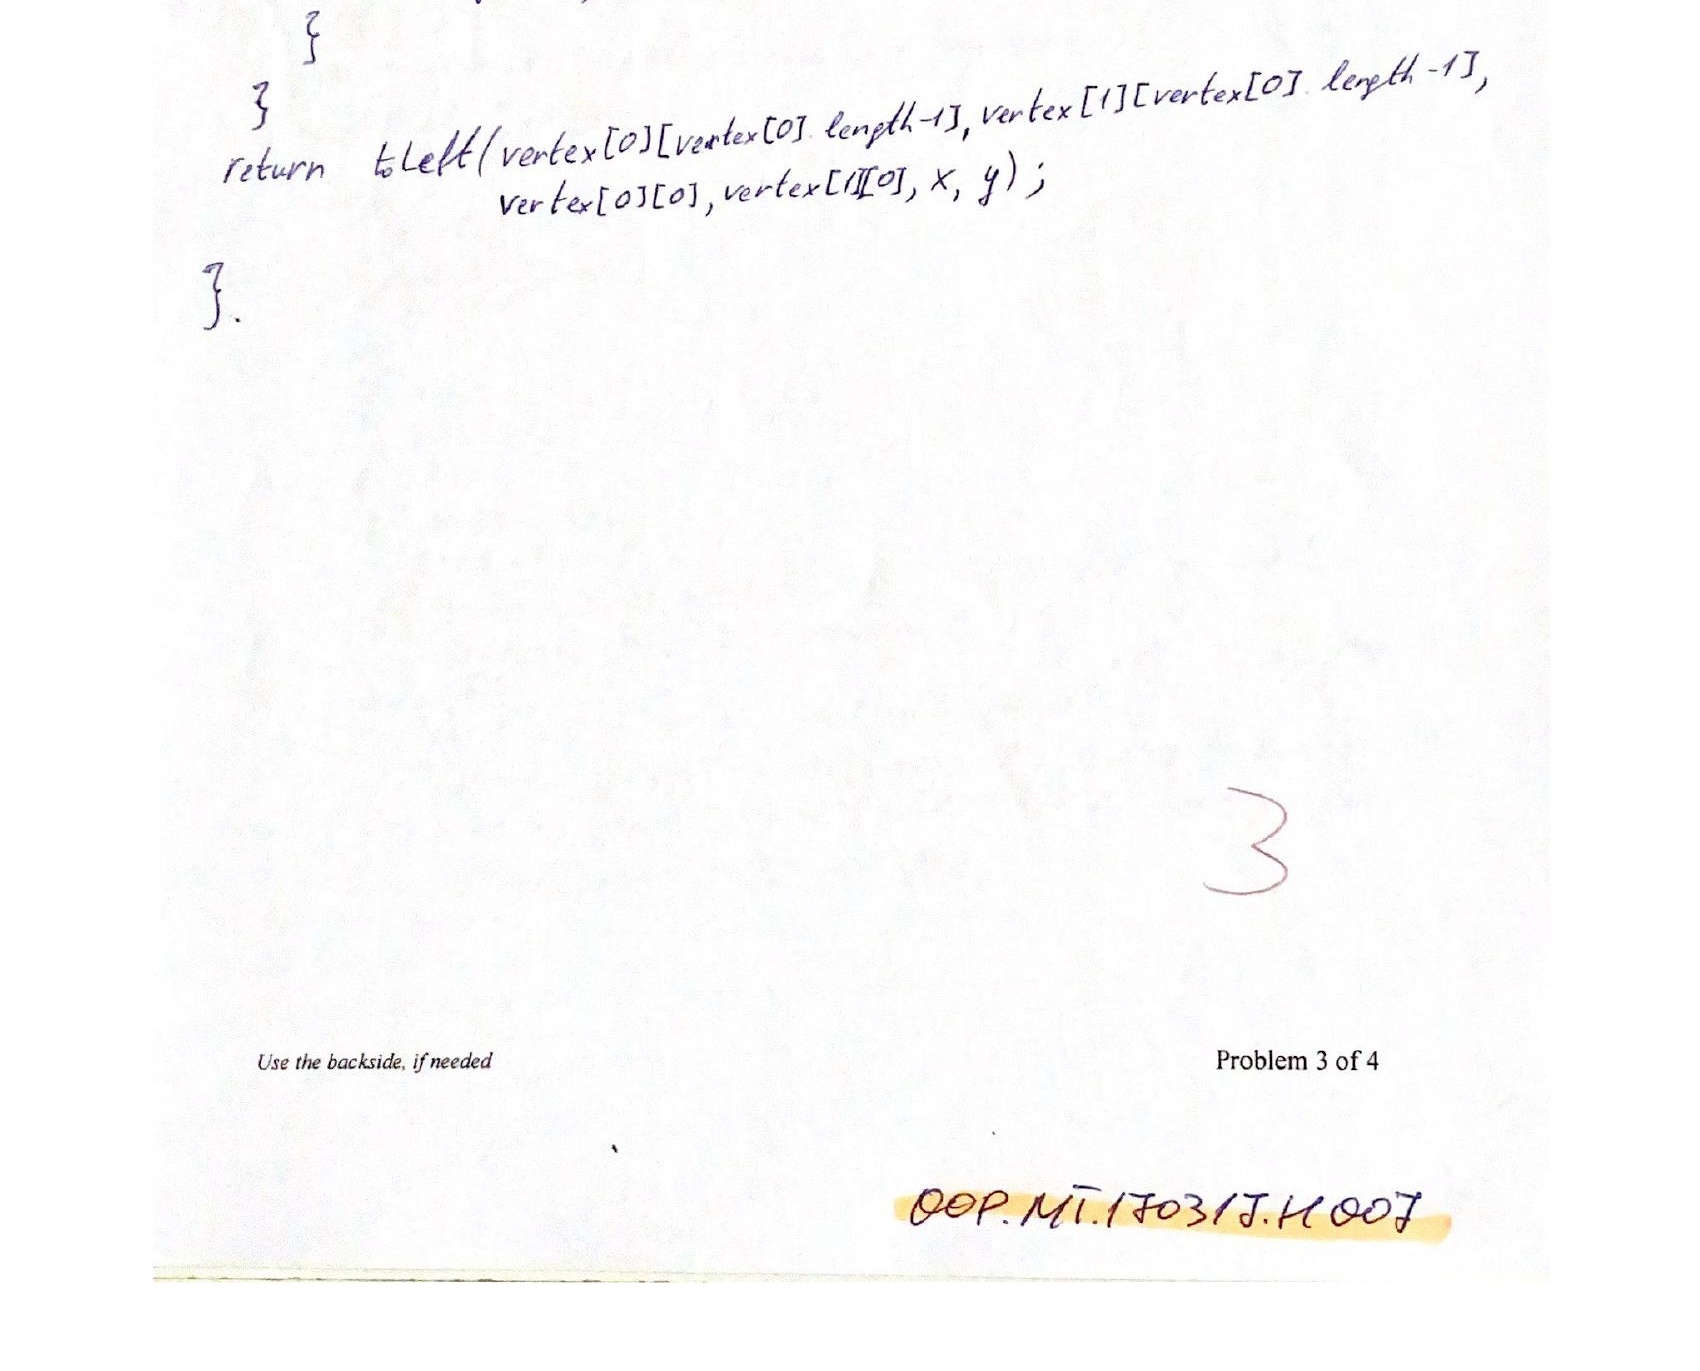 }
}
return toLeft(vertex[0][vertex[0].length-1], vertex[1][vertex[0].length-1],
vertex[0][0], vertex[1][0], x, y);
}.
3
Use the backside, if needed
Problem 3 of 4
OOP.MT.170317.H007